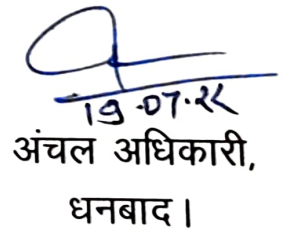 19.07.22
अंचल अधिकारी,
धनबाद।